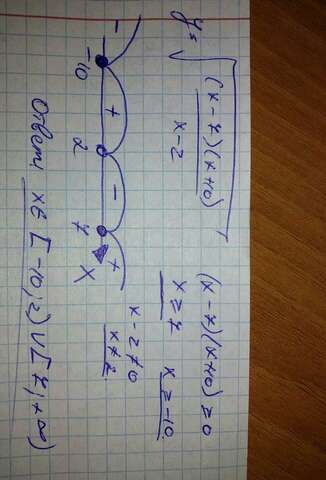 y = √((x-7)(x+10) / x-2)
(x-7)(x+10) ≥ 0
x ≥ 7   x ≥ -10
x - 2 ≠ 0
x ≠ 2
- + - +
-10 2 7 X
Ответ: x ∈ [-10; 2) ∪ [7, +∞)